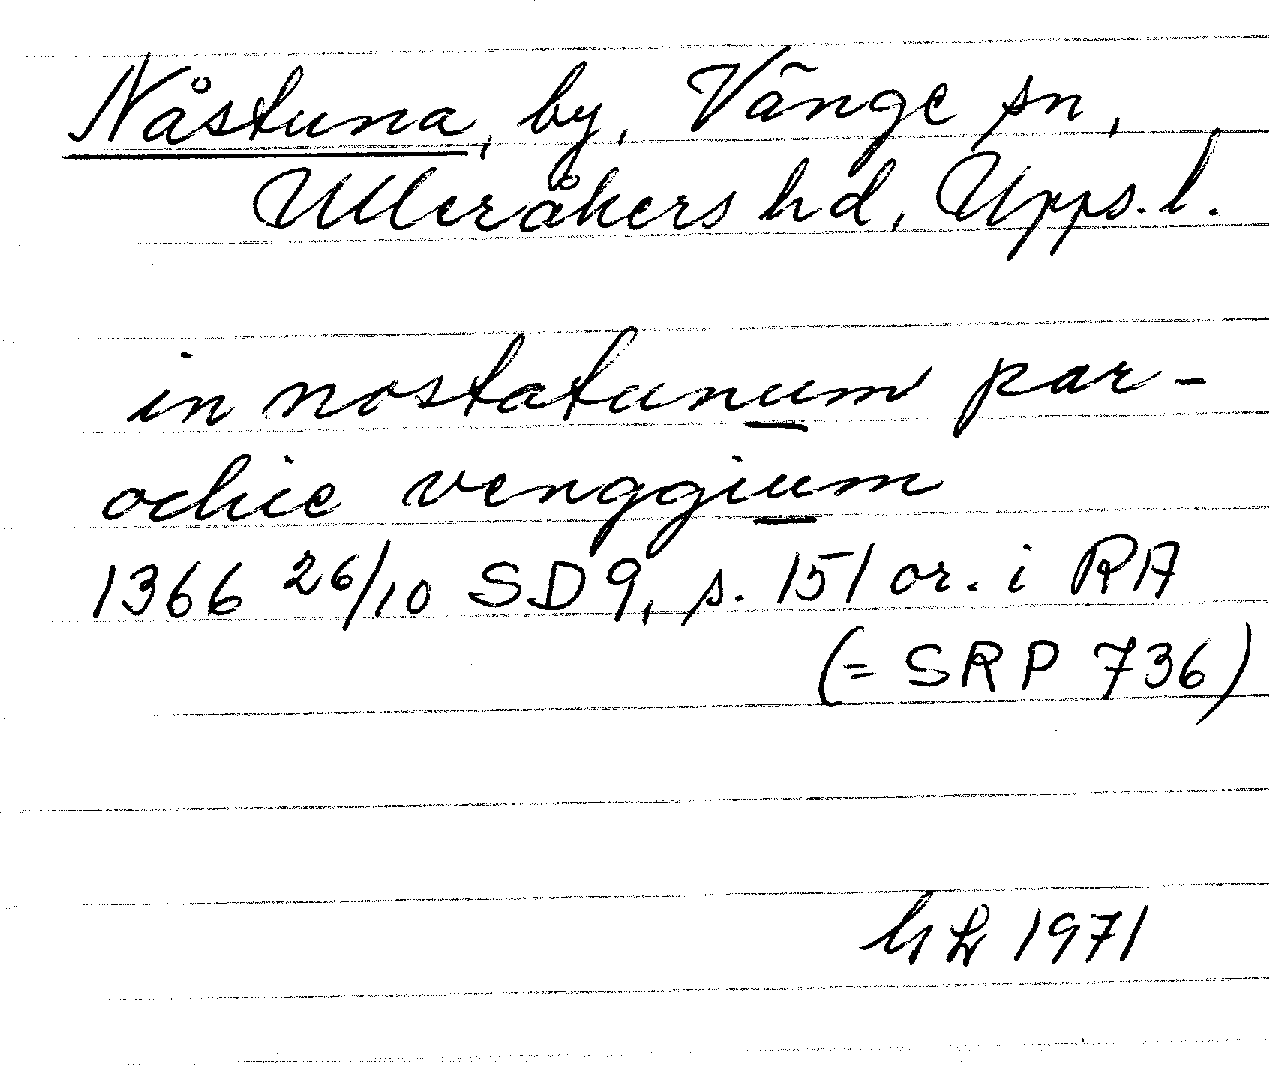 Nåstuna, by, Vänge sn,
Ulleråkers hd, Upps. l.
in nostatunum par-
ochie venggium
1366 26/10 SD 9, s. 151 or. i RA
(= SRP 736)
1971